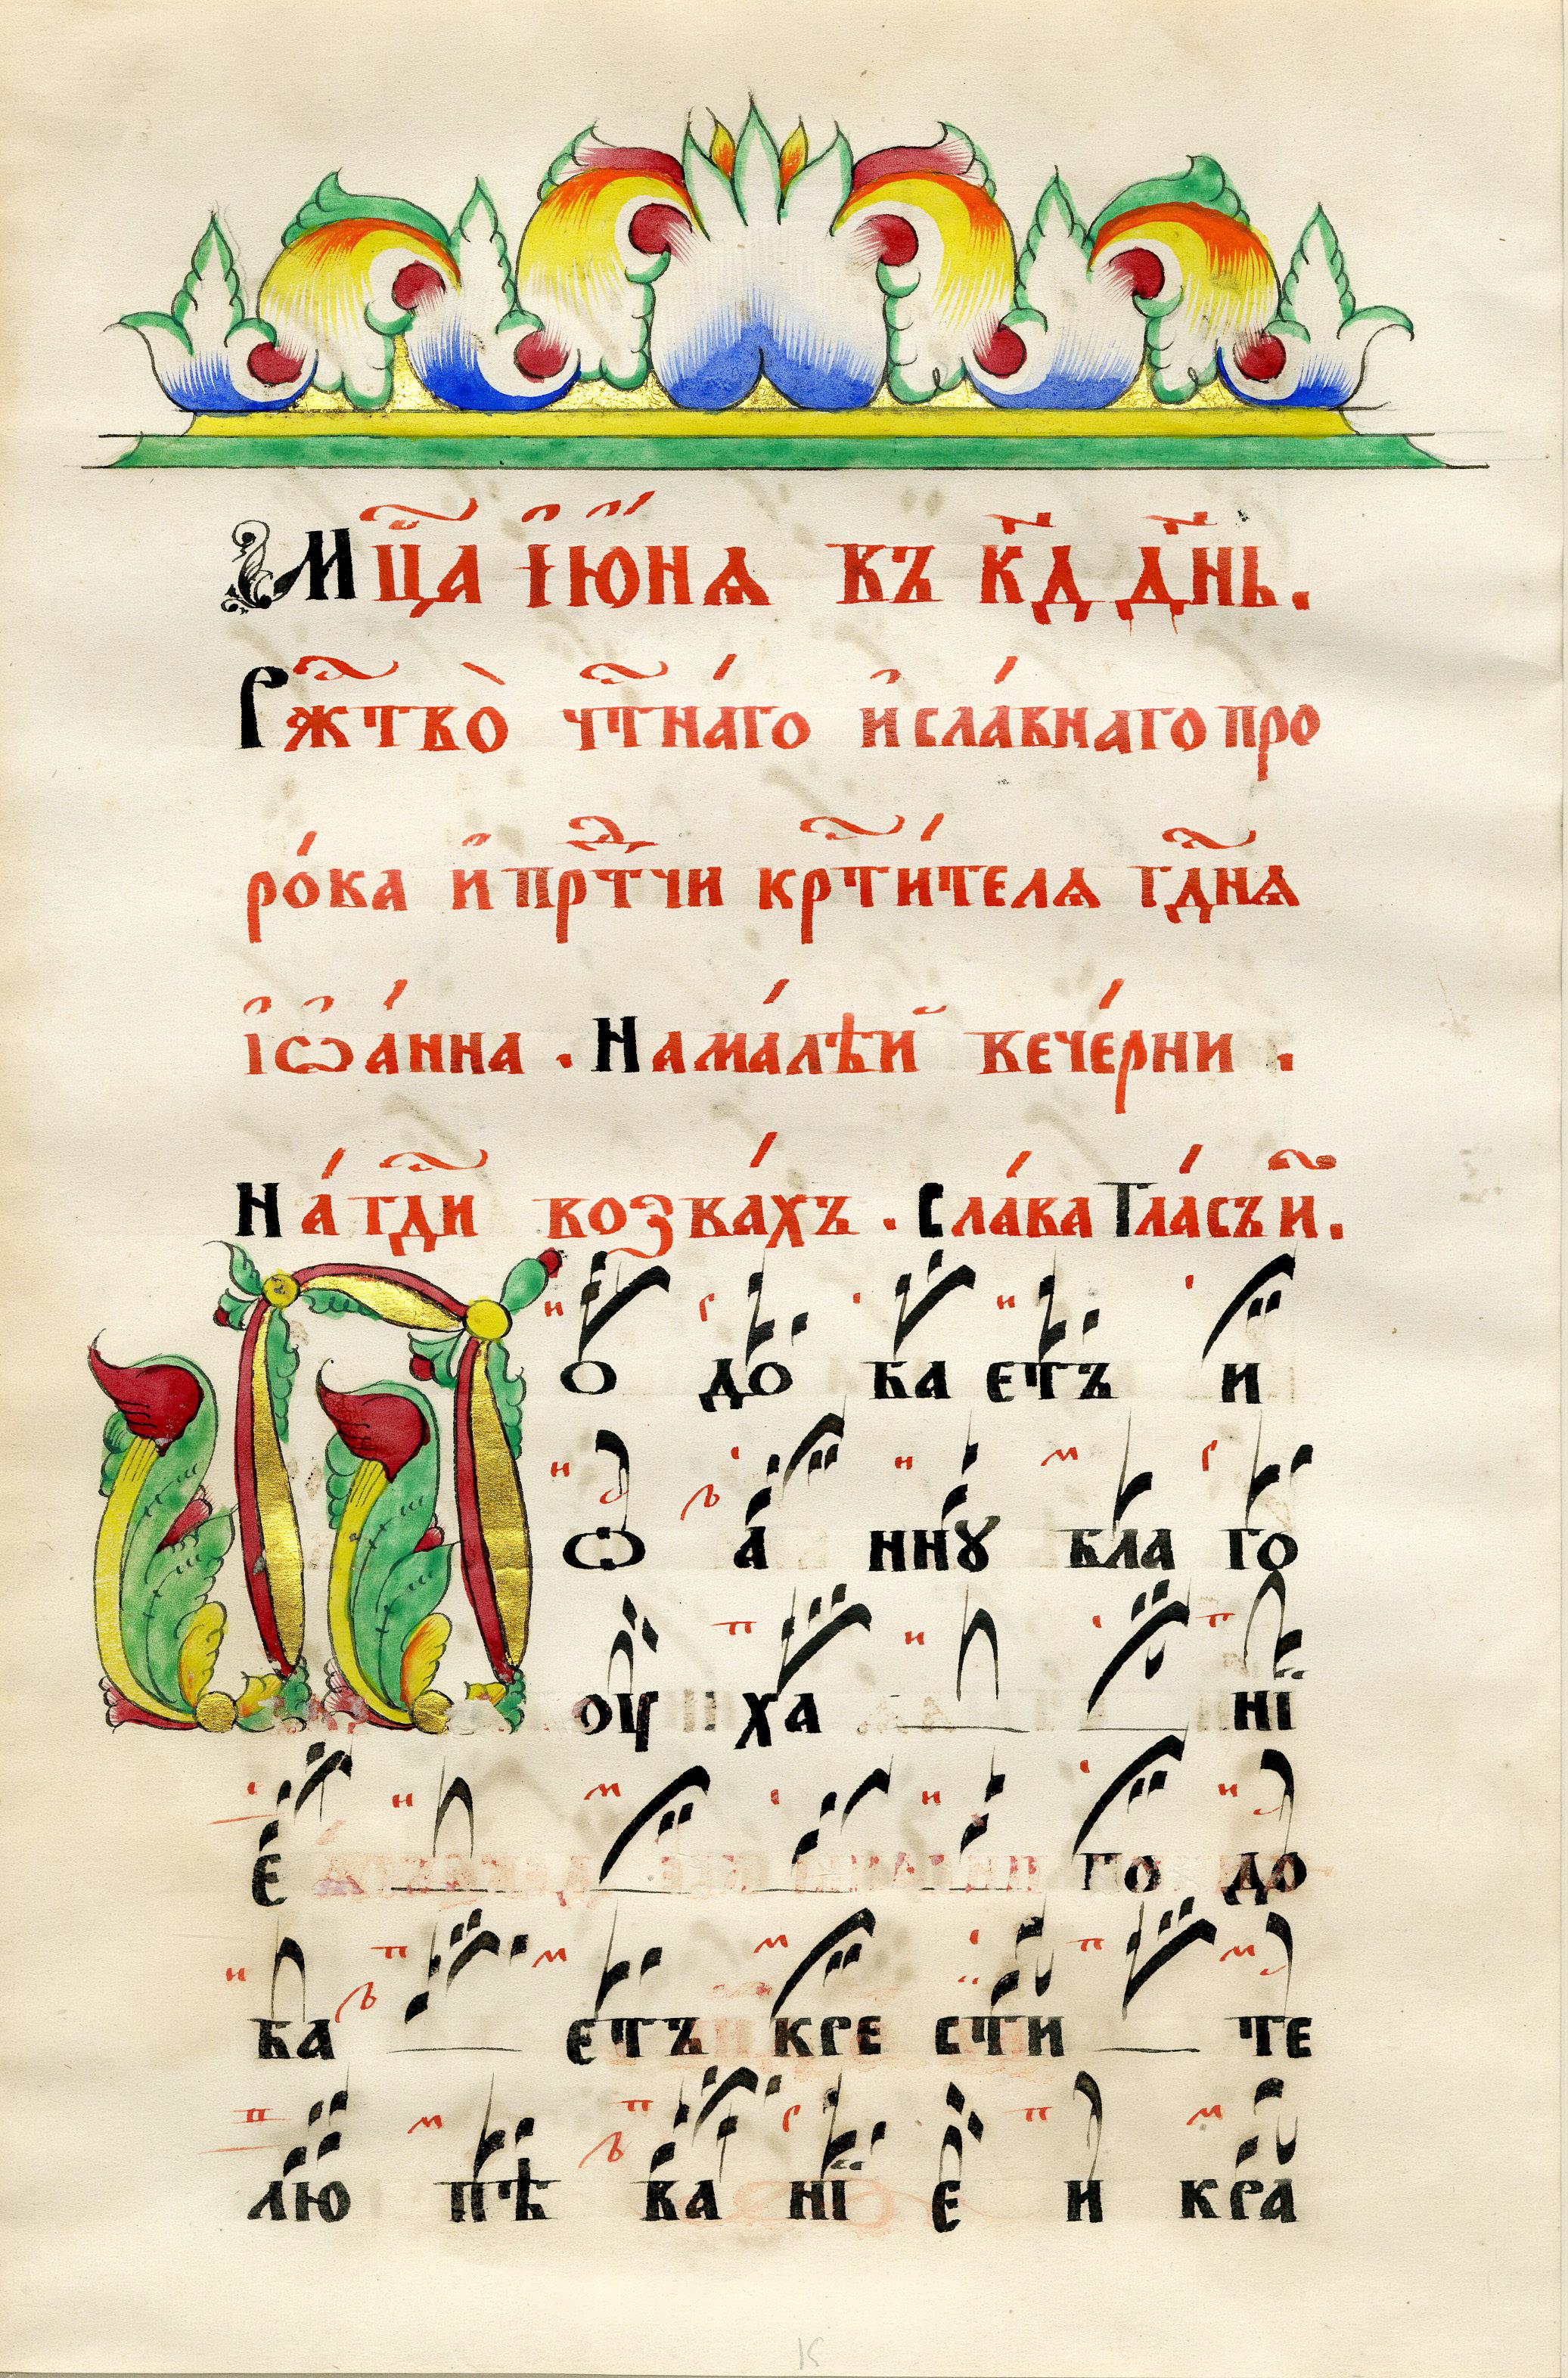 Мц҃а і҆ю҆́нѧ въ к҃д дн҃ь.
Рж҃тво̀ чт҃на́го и҆сла́внаго про
ро́ка и҆прⷣт҃чи крт҃и́телѧ гд҃нѧ
і҆ѡ҆а́нна . Нама́лѣй вече́рни .
На́ гд҃и возва́хъ . Сла́ва Гла́съ и҃.
П о до ба етъ и
ѡ а́ ннꙋ бла го
оу ха ні
е го до
ба етъ кре сти те
лю пѣ ва ні е и кра